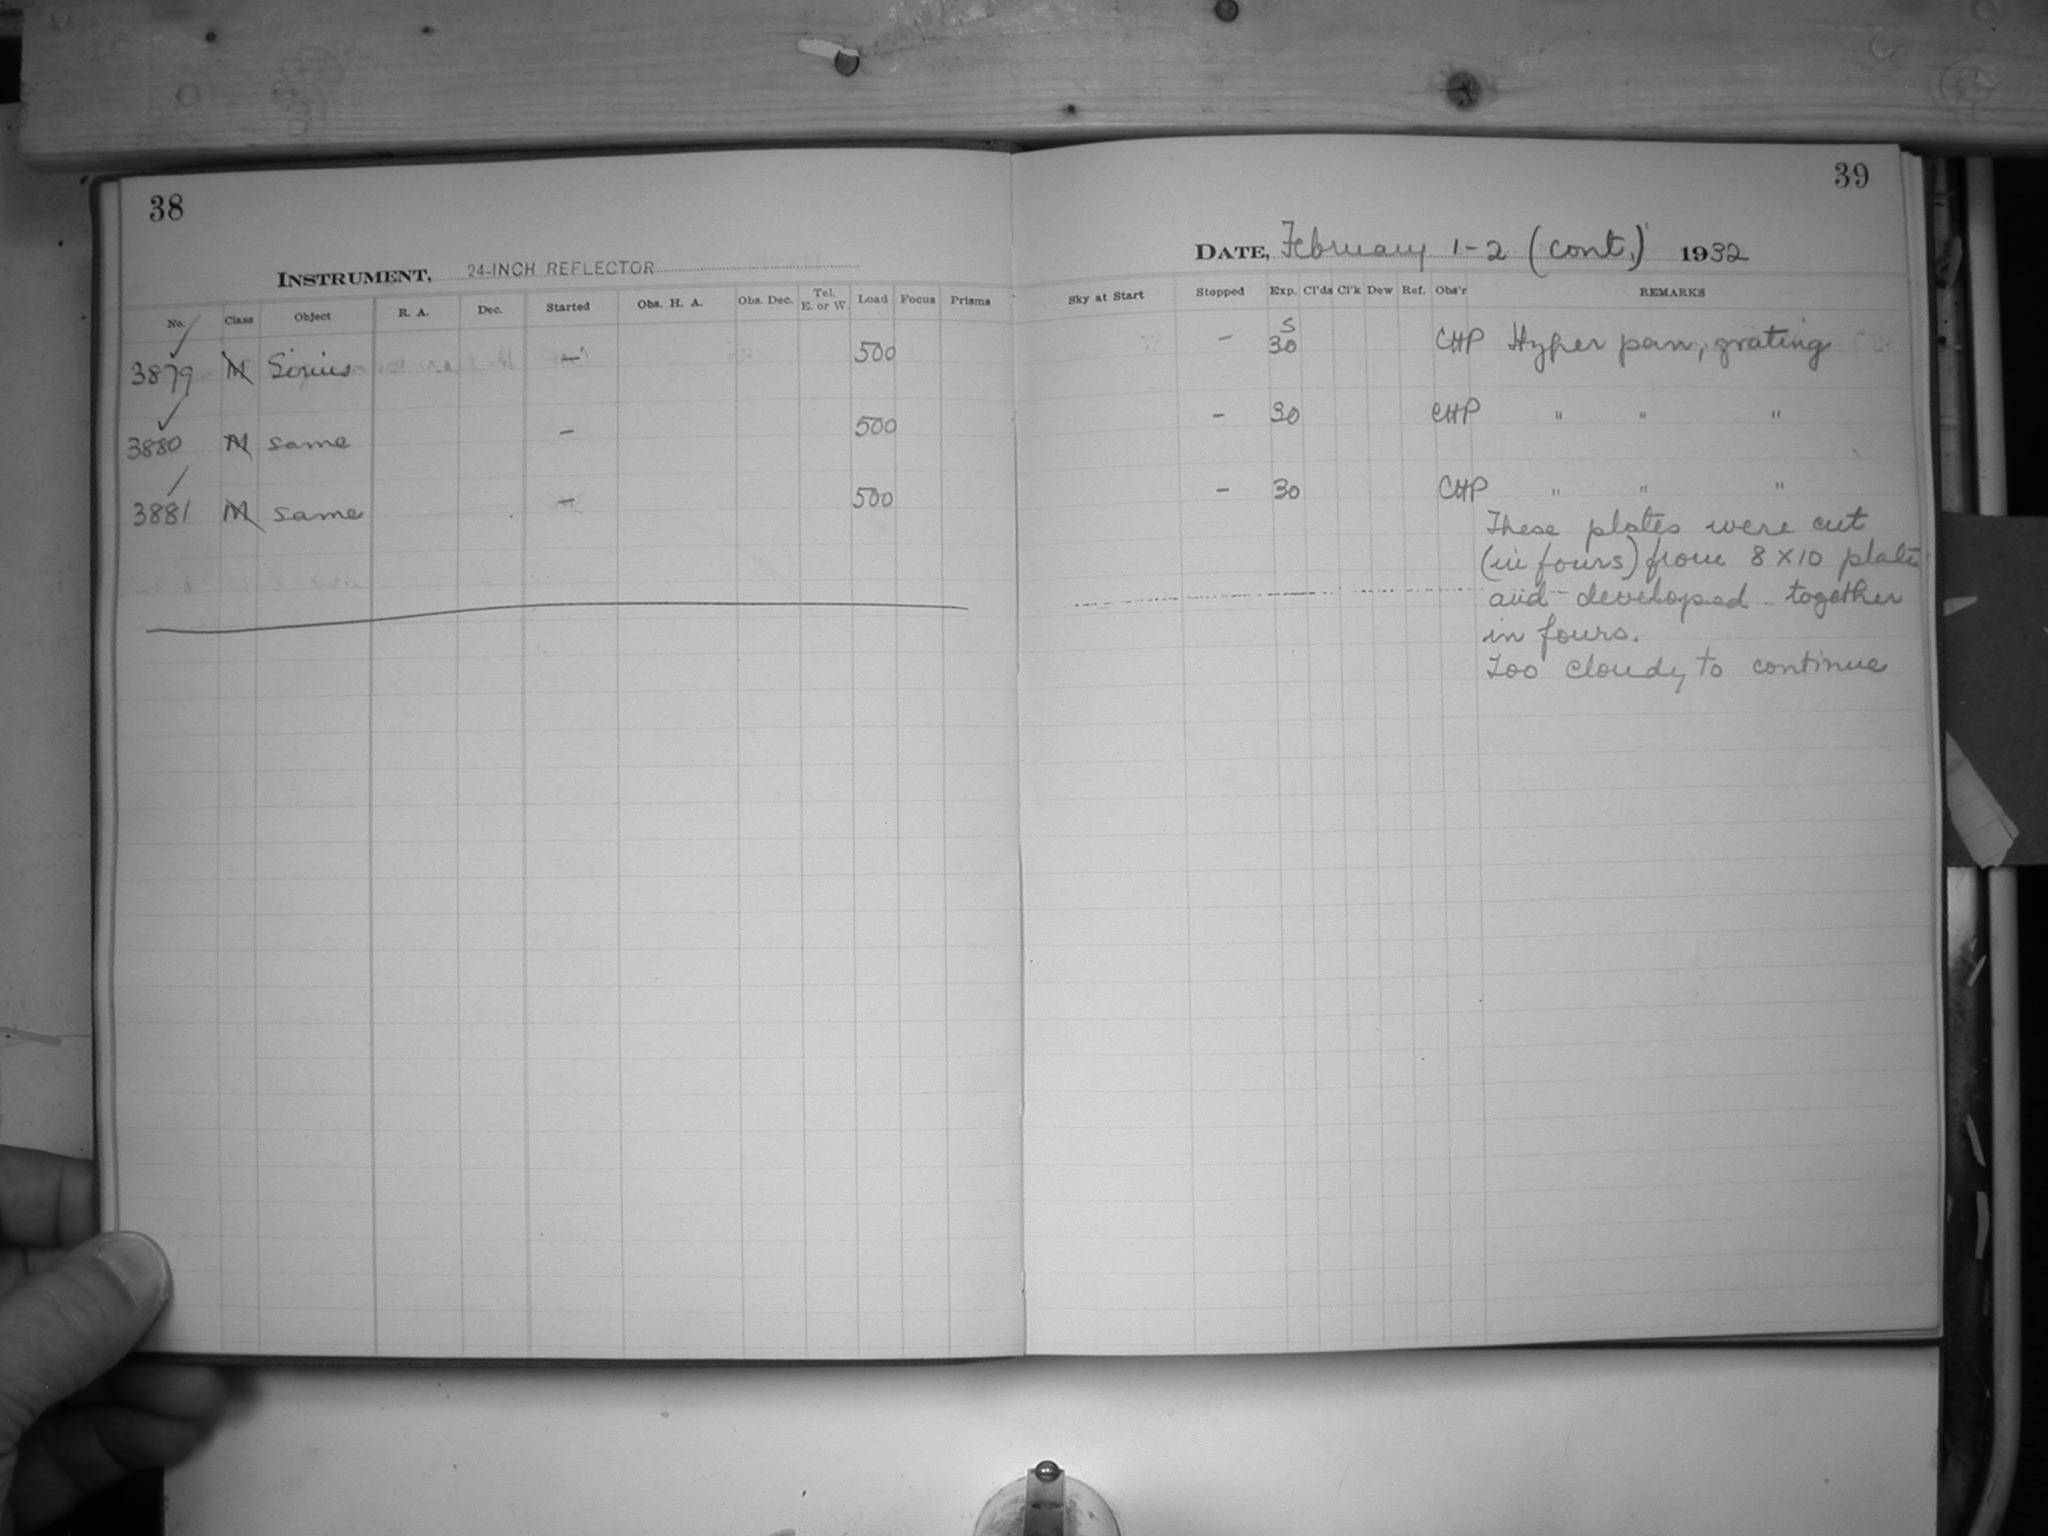 38
INSTRUMENT, 24-INCH REFLECTOR
No. Class Object R. A. Dec. Started Obs. H. A. Obs. Dec. Tel. E. or W. Load Focus Prisms
3879 M Sirius — 500
3880 M same — 500
3881 M same — 500
39
DATE, February 1-2 (cont.) 1932
Sky at Start Stopped Exp. Cl'ds Cl'k Dew Ref. Obs'r REMARKS
— 30 s CHP Hyper pan, grating
— 30 CHP " " "
— 30 CHP " " "
These plates were cut
(in fours) from 8 x 10 plate
and developed together
in fours.
Too cloudy to continue